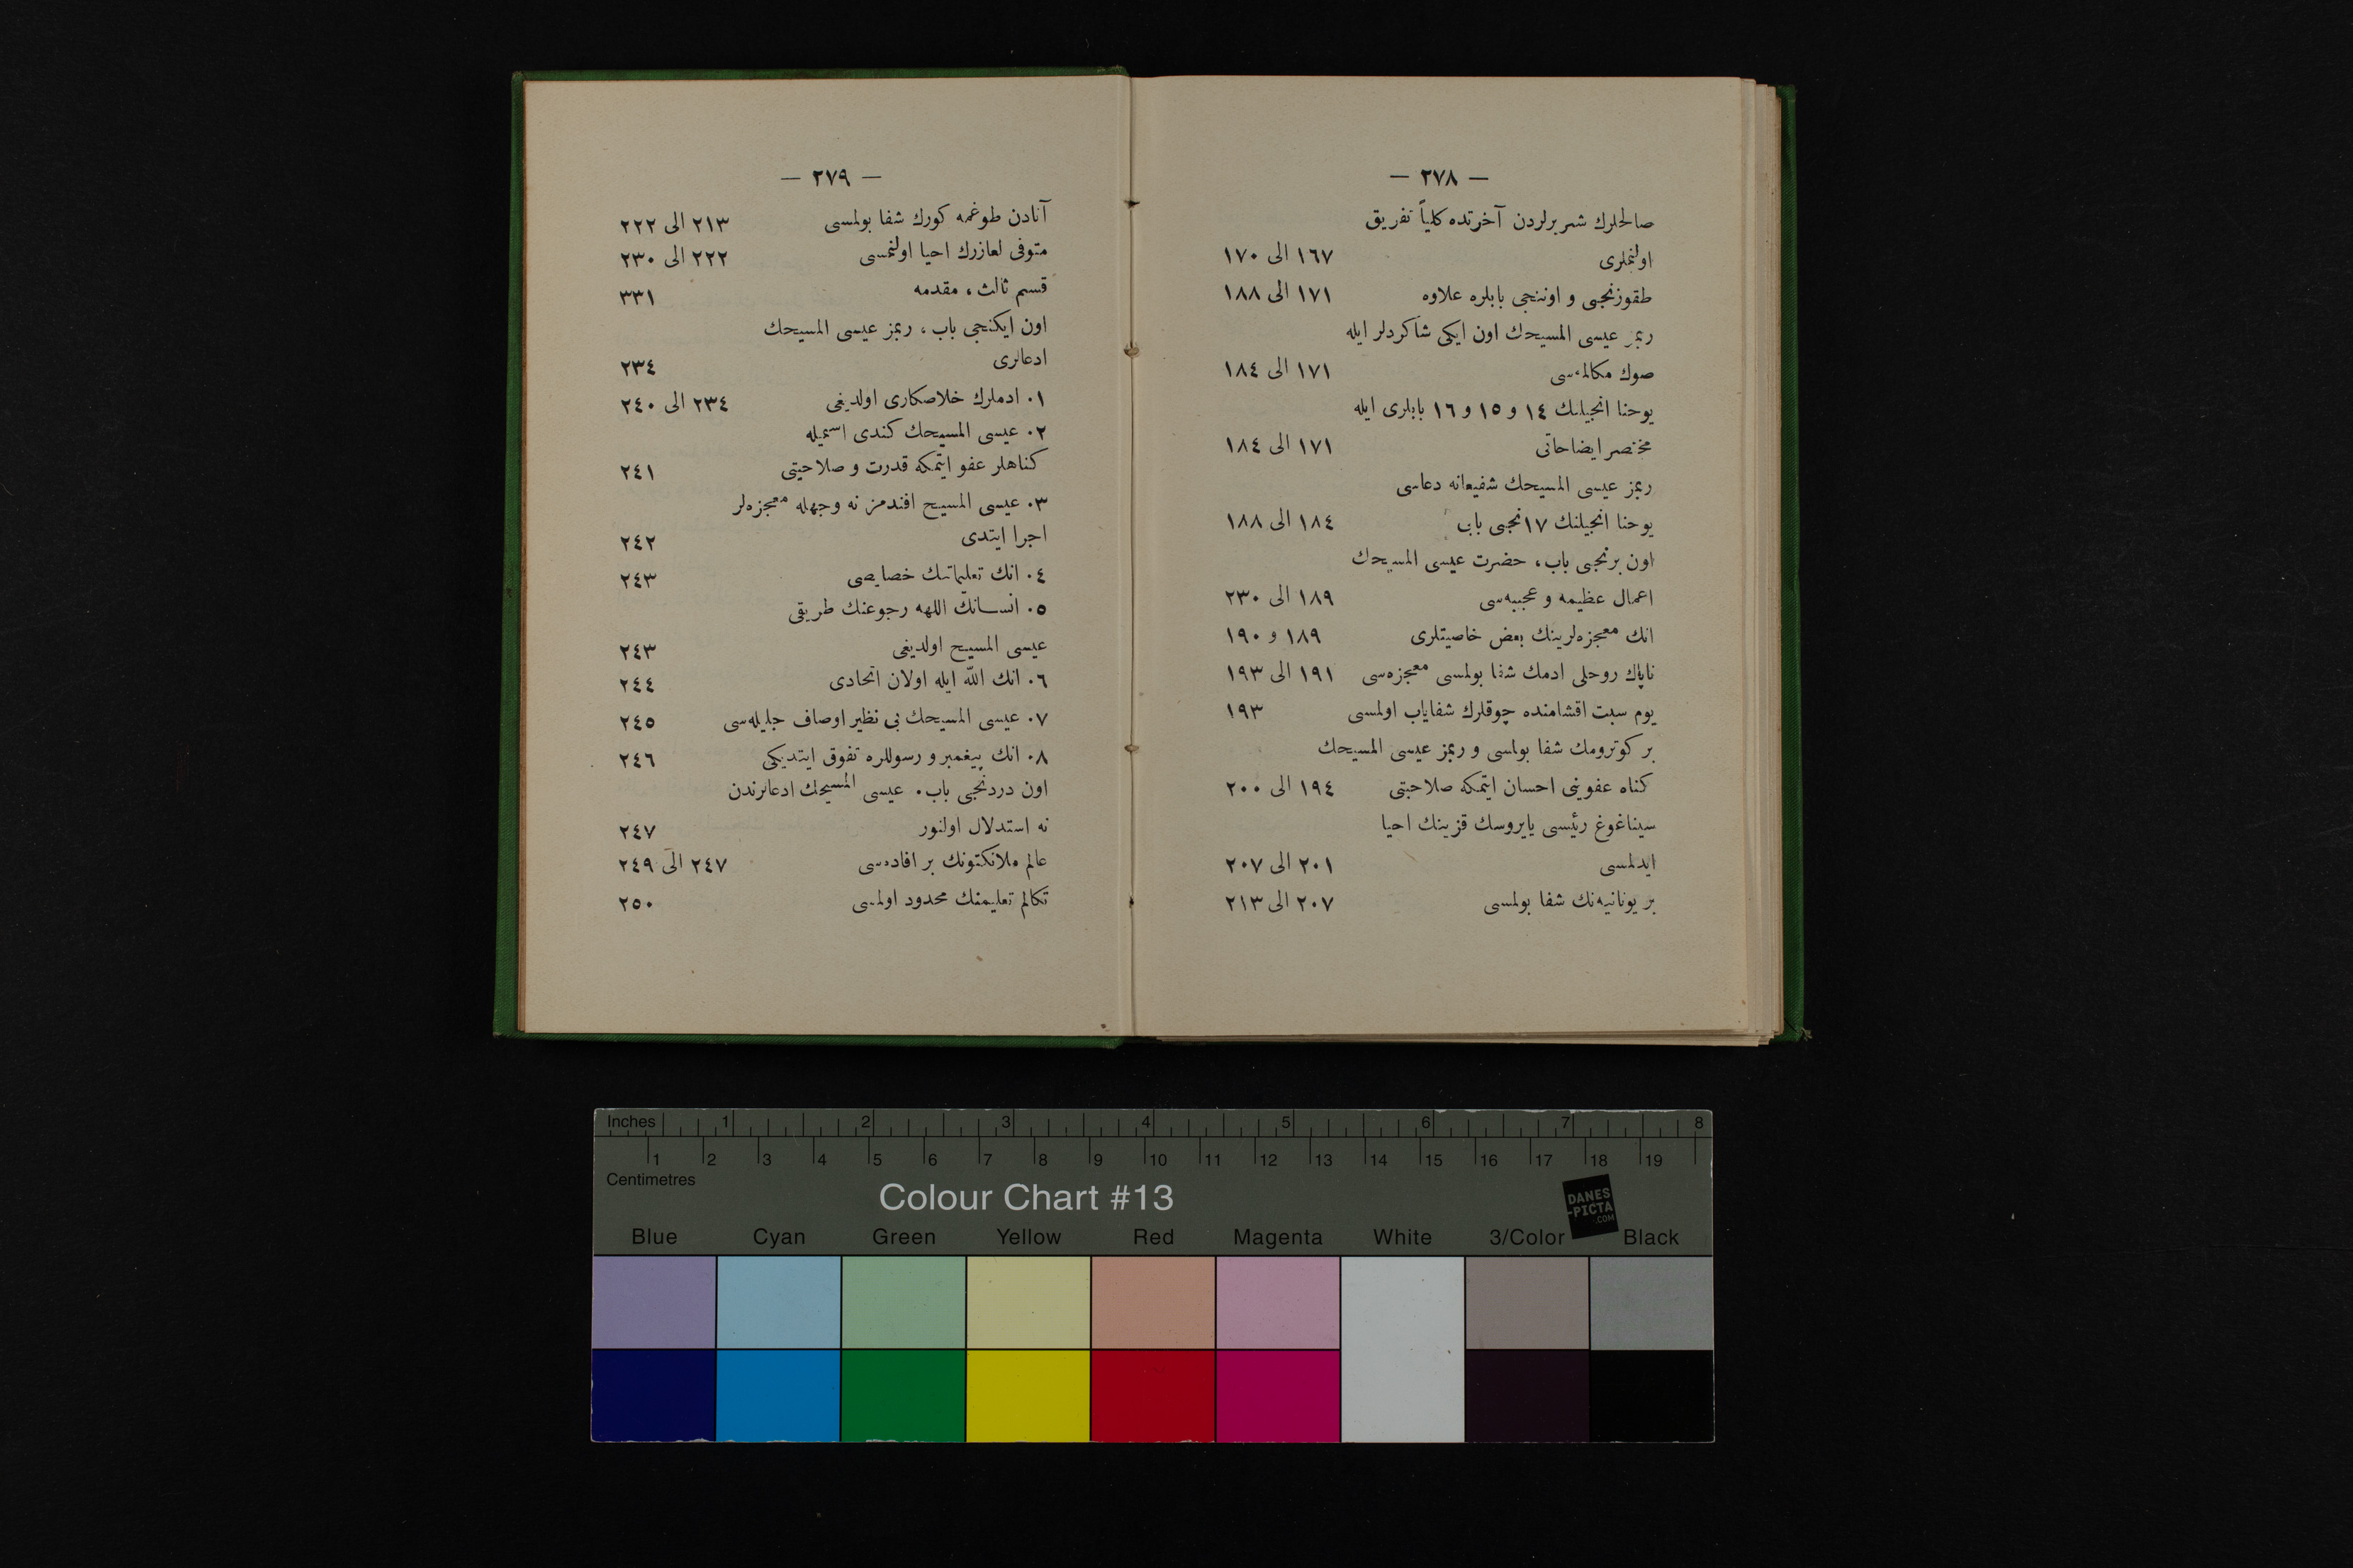 — ٢٧٨ —
صالحلرك شريرلردن آخرتده كلياً تفريق
اولنملرى ١٦٧ الى ١٧٠
طقوزنجى و اوننجى بابلره علاوه ١٧١ الى ١٨٨
ربمز عيسى المسيحك اون ايكى شاكردلر ايله
صوك مكالمه‌سى ١٧١ الى ١٨٤
يوحنا انجيلنك ١٤ و ١٥ و ١٦ بابلرى ايله
مختصر ايضاحاتى ١٧١ الى ١٨٤
ربمز عيسى المسيحك شفيعانه دعاسى
يوحنا انجيلنك ١٧نجى باب ١٨٤ الى ١٨٨
اون برنجى باب، حضرت عيسى المسيحك
اعمال عظيمه و عجيبه‌سى ١٨٩ الى ٢٣٠
انك معجزه‌لرينك بعض خاصيتلرى ١٨٩ و ١٩٠
ناپاك روحلى ادمك شفا بولمسى معجزه‌سى ١٩١ الى ١٩٣
يوم سبت اقشامنده چوقلرك شفاياب اولمسى ١٩٣
بر كوترومك شفا بولمسى و ربمز عيسى المسيحك
كناه عفوينى احسان ايتمكه صلاحيتى ١٩٤ الى ٢٠٠
سيناغوغ رئيسى يايروسك قزينك احيا
ايدلمسى ٢٠١ الى ٢٠٧
بر يونانيه‌نك شفا بولمسى ٢٠٧ الى ٢١٣
— ٢٧٩ —
آنادن طوغمه كورك شفا بولمسى ٢١٣ الى ٢٢٢
متوفى لعازرك احيا اولنمسى ٢٢٢ الى ٢٣٠
قسم ثالث، مقدمه ٣٣١
اون ايكنجى باب، ربمز عيسى المسيحك
ادعالرى ٢٣٤
١. ادملرك خلاصكارى اولديغى ٢٣٤ الى ٢٤٠
٢. عيسى المسيحك كندى اسميله
كناهلر عفو ايتمكه قدرت و صلاحيتى ٢٤١
٣. عيسى المسيح افندمز نه وجهله معجزه‌لر
اجرا ايتدى ٢٤٢
٤. انك تعليماتنك خصايصى ٢٤٣
٥. انسانك اللهه رجوعنك طريقى
عيسى المسيح اولديغى ٢٤٣
٦. انك الله ايله اولان اتحادى ٢٤٤
٧. عيسى المسيحك بى نظير اوصاف جليله‌سى ٢٤٥
٨. انك پيغمبر و رسوللره تفوق ايتديكى ٢٤٦
اون دردنجى باب. عيسى المسيحك ادعالرندن
نه استدلال اولنور ٢٤٧
عالم ملانكتونك بر افاده‌سى ٢٤٧ الى ٢٤٩
تكالم تعليمنك محدود اولمسى ٢٥٠
Inches 1 2 3 4 5 6 7 8
1 2 3 4 5 6 7 8 9 10 11 12 13 14 15 16 17 18 19
Centimetres
Colour Chart #13
DANES
-PICTA
.COM
Blue Cyan Green Yellow Red Magenta White 3/Color Black